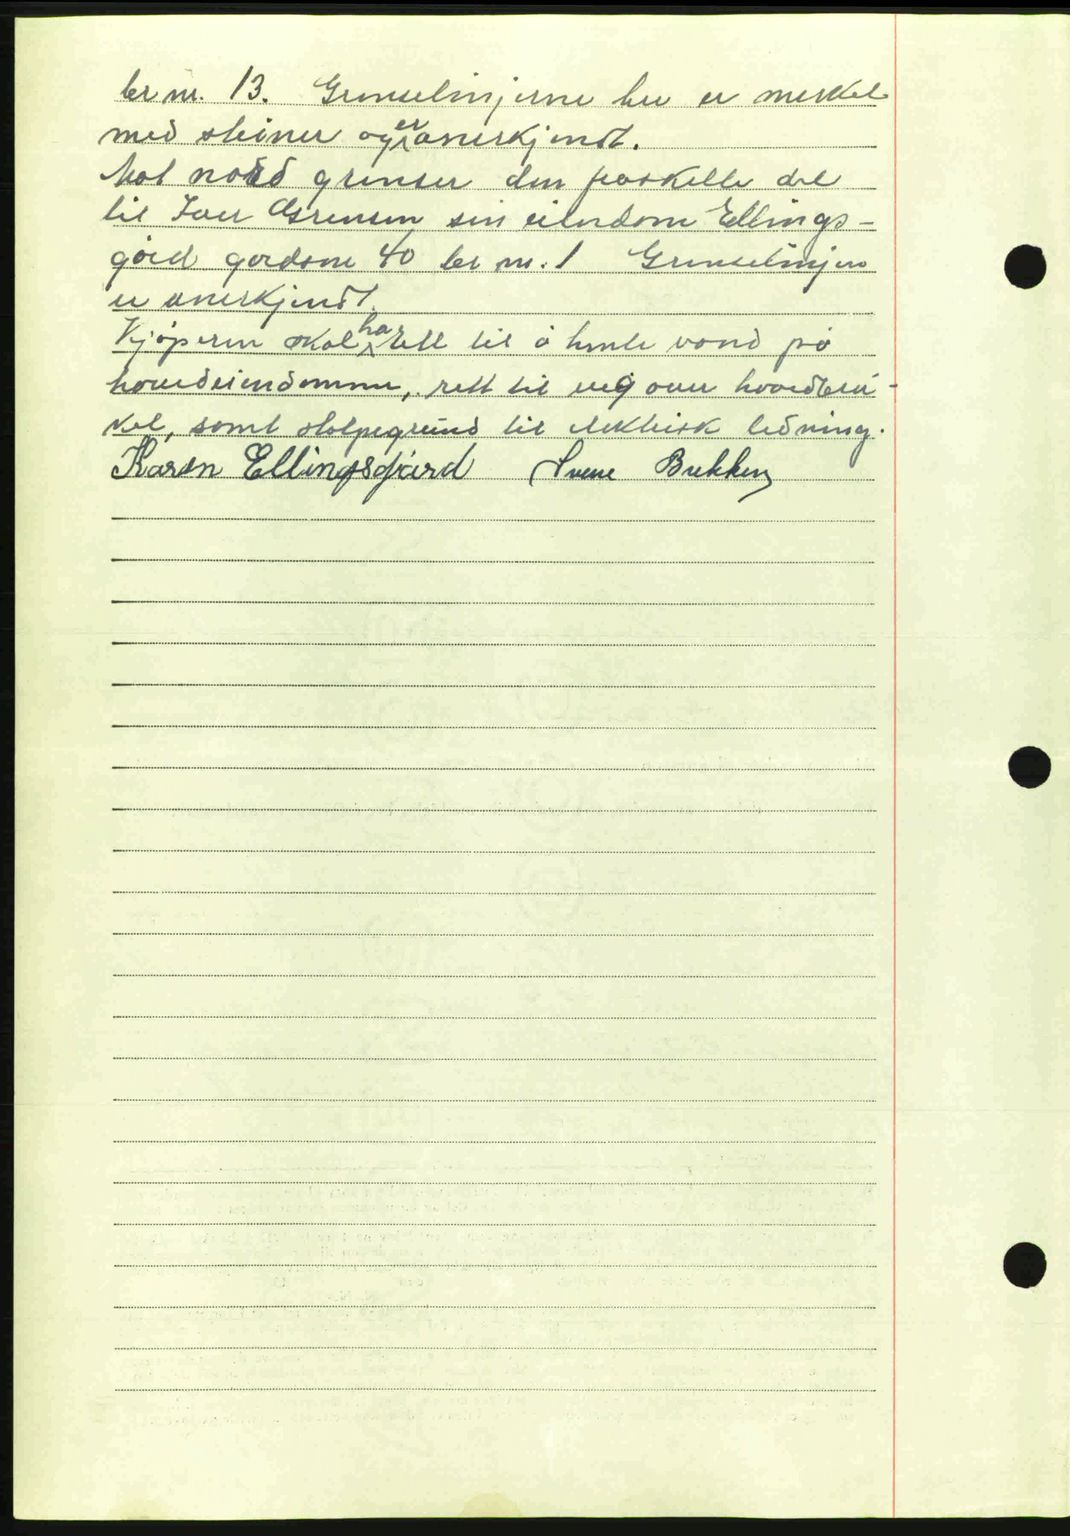 br nr. 13. Grenselinjerne her er merket
med steiner og er anerkjendt.
Mot nord grenser den fraskelte del
til Iver Sørensen sin eiendom Ellings-
gård gardsnr 40 br nr. 1 Grenselinjen
er anerkjendt.
Kjøperen skal ha rett til å hente vand på
hovedeiendommen, rett til veg over hovedbru-
ket, samt stolpegrund til elektrisk ledning.
Karen Ellingsgård Svene Brekken